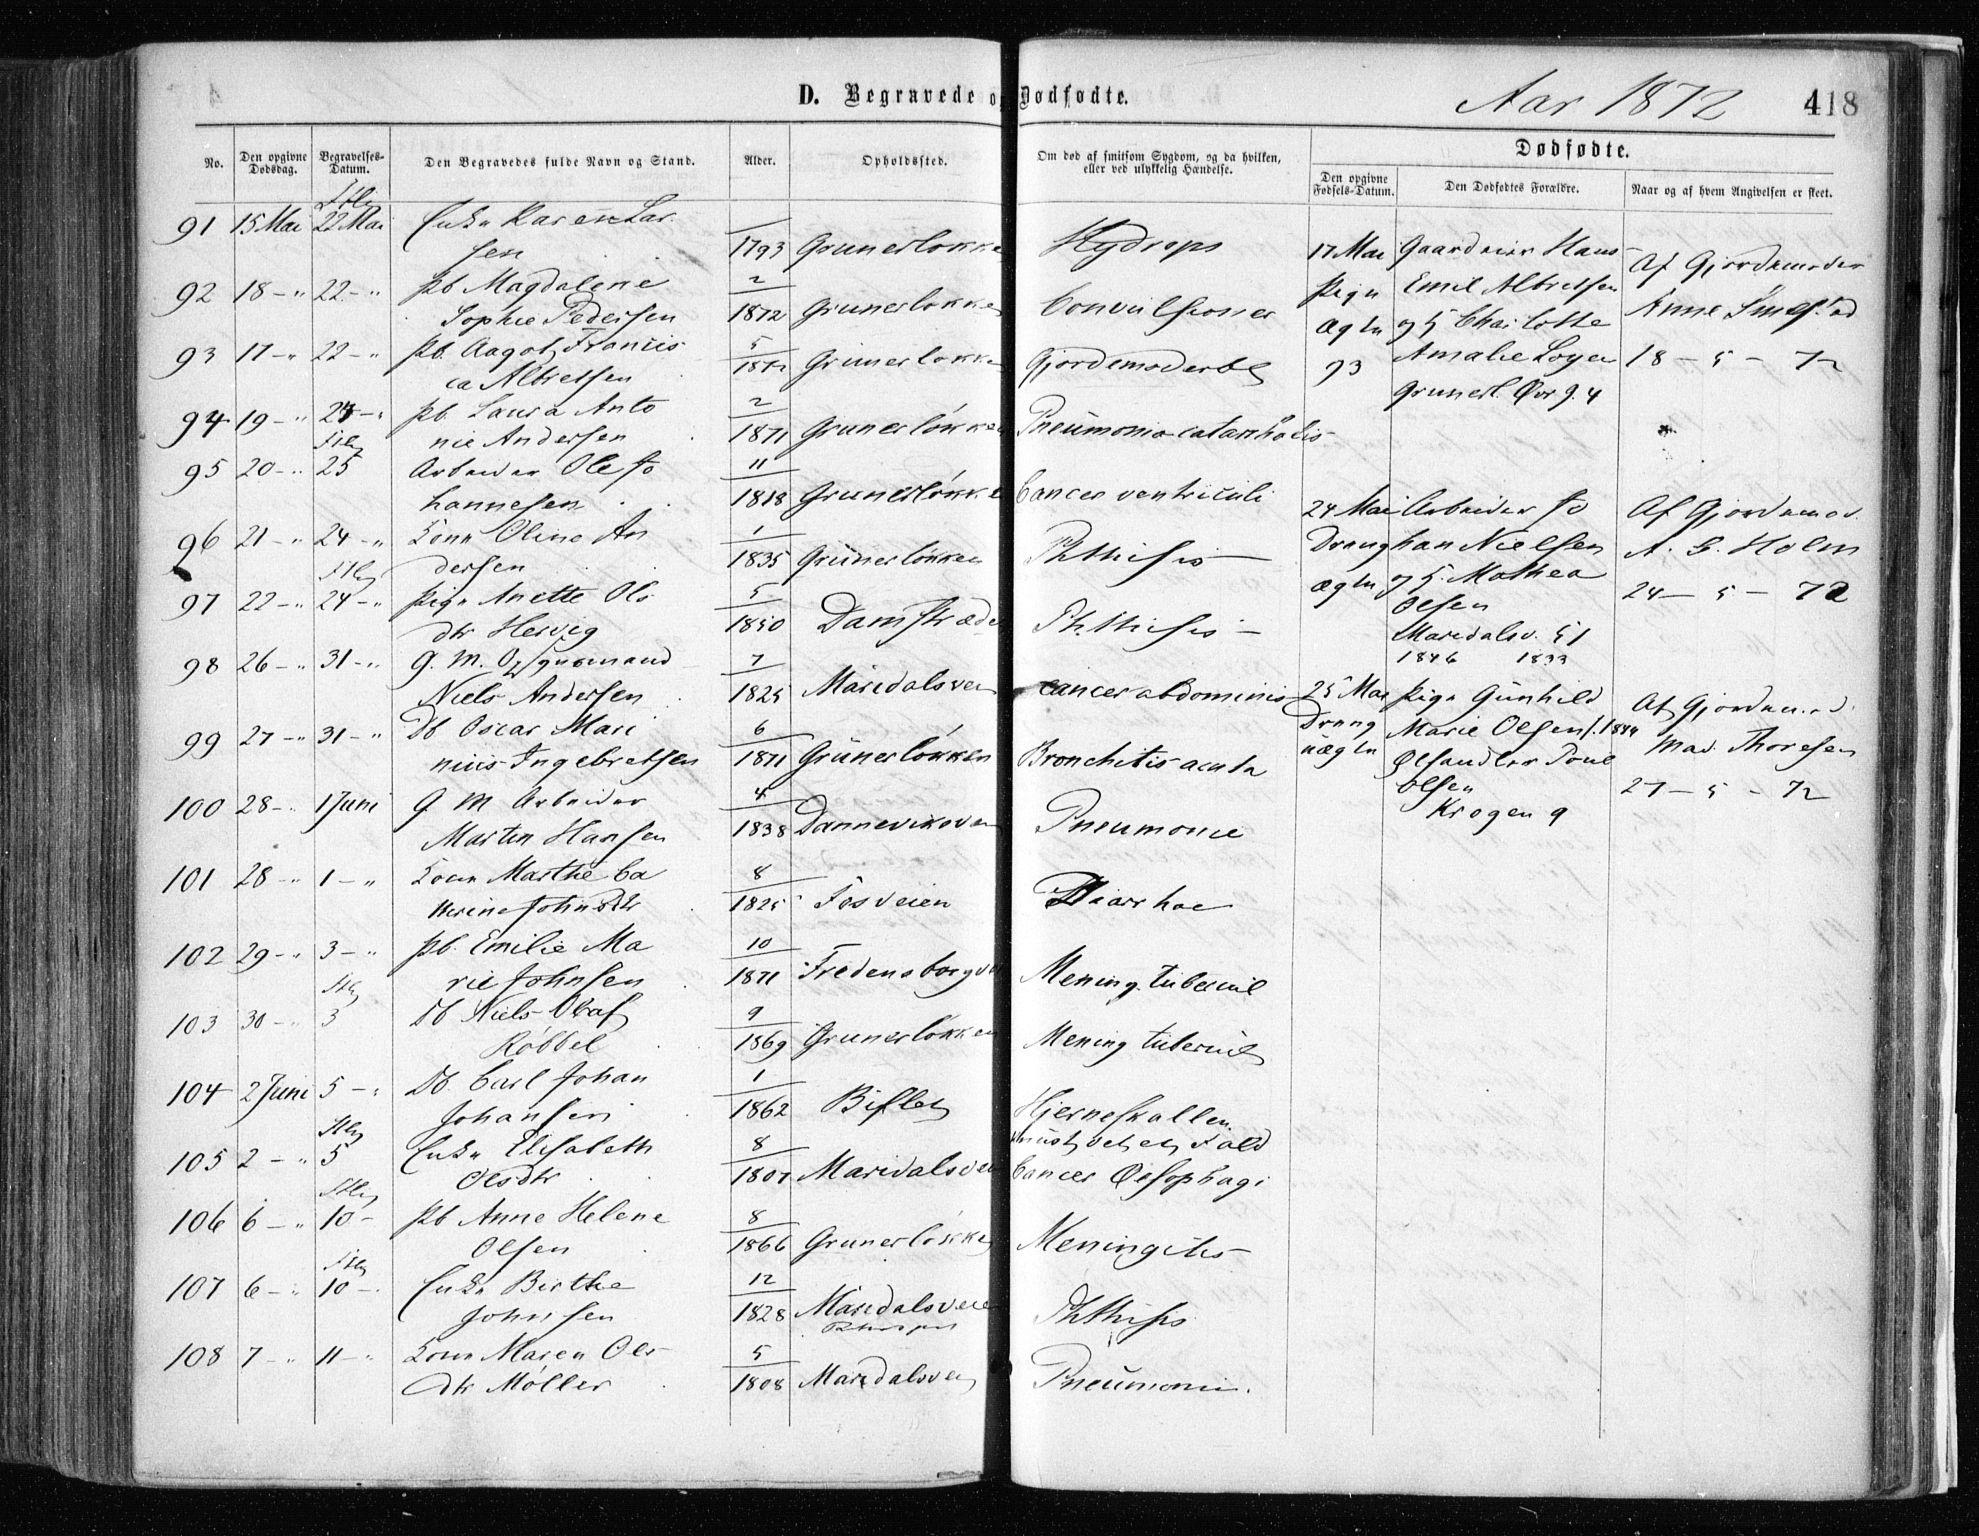 D. Begravede o Dødfødte.
Aar 1872
418
No.
Den opgivne Dødsdag.
Begravelses-Datum.
Den Begravedes fulde Navn og Stand.
Alder.
Opholdssted.
Om død af smitsom Sygdom, og da hvilken, eller ved ulykkelig Hændelse.
Dødfødte.
Den opgivne Fødsels-Datum.
Den Dødfødtes Forældre.
Naar og af hvem Angivelsen er skeet.
91 15 Mai 22 Mai Enke Karen Lar
sen 1793 Grunerløkke Hydrops
92 18 - " 22 - " Pb. Magdalene 2
Sophie Pedersen 1872 Grunerløkken Convulsioner
93 17 - " 22 - " Pb. Aagot Francis 5
ca Albretsen 1872 Grunerløkken Gjordemoderbl
94 19 - " 24 - " Pb. Laura Anto 2
nie Andersen 1871 Grunerløkken Pneumonia catarrhalis
95 20 - " 25 Arbeider Ole Jo 11
hannesen 1818 Grunerløkke Cancer ventriculi
96 21 - " 24 - " Kone Oline An 1
dersen 1835 Grünerløkken Phthisis
97 22 - " 24 - " Pige Anette Ols 5
dtr Hesvig 1850 Damstræde Phthisis
98 26 - " 31 - " G. M. Opsynsmand 7
Niels Andersen 1825 Maridalsvei cancer abdominis
99 27 - " 31 - " Db Oscar Mari 6
nius Ingebretsen 1871 Grünerløkken Bronchitis acuta
100 28 - " 1 Juni G M Arbeider 4
Martin Hansen 1838 Dannevirksvei Pneumonie
101 28 - " 1 - " Kone Marthe Ca 8
therine Johnsdtr 1825 Fosveien Diarrhoe
102 29 - " 3 - " Pb. Emilie Ma 10
rie Johnsen 1871 Fredensborgv Mening. tubercul
103 30 - " 3 Db Niels Olaf 9
Røbbel 1869 Grunerløkken Mening tubercul
104 2 Juni 5 - " Db. Carl Johan 1
Johansen 1862 Bislet Hjerneskallen
knust ved et Fald
105 2 - " 5 Enke Elisabeth 8
Olsdtr 1807 Maridalsvei Cancer Øesophagi
106 6 - " 10 - Pb Anne Helene 8
Olsen 1866 Grunerløkke Meningitis
107 6 - " 10 - Enke Birthe 12
Johnsen 1828 Maridalsveie Phthisis
108 7 - " 11 - " Kone Maren Ols 5
dtr Møller 1808 Maridalsvei Pneumoni.
17 Mai Gaardeier Hans Af Gjordemoder
Pige Emil Albretsen Anne
Ægte og H. Charlotte
93 Amalie Loyer 18 - 5 - 72
Grunerl. Øvr g. 4
24 Mai Arbeider Jo Af Gjordemod.
Dreng han Nielsen A. G. Holm
ægte og H. Mathea 24 - 5 - 72
Olsen
Maridalsv. 51
1846 1833
25 Mai Pige Gunhild Af Gjordem.
Dreng Marie Olsen f. 1844 Mad. Thoresen
uægte Ølhandler Poul
Olsen 27 - 5 - 72
Krogen 9